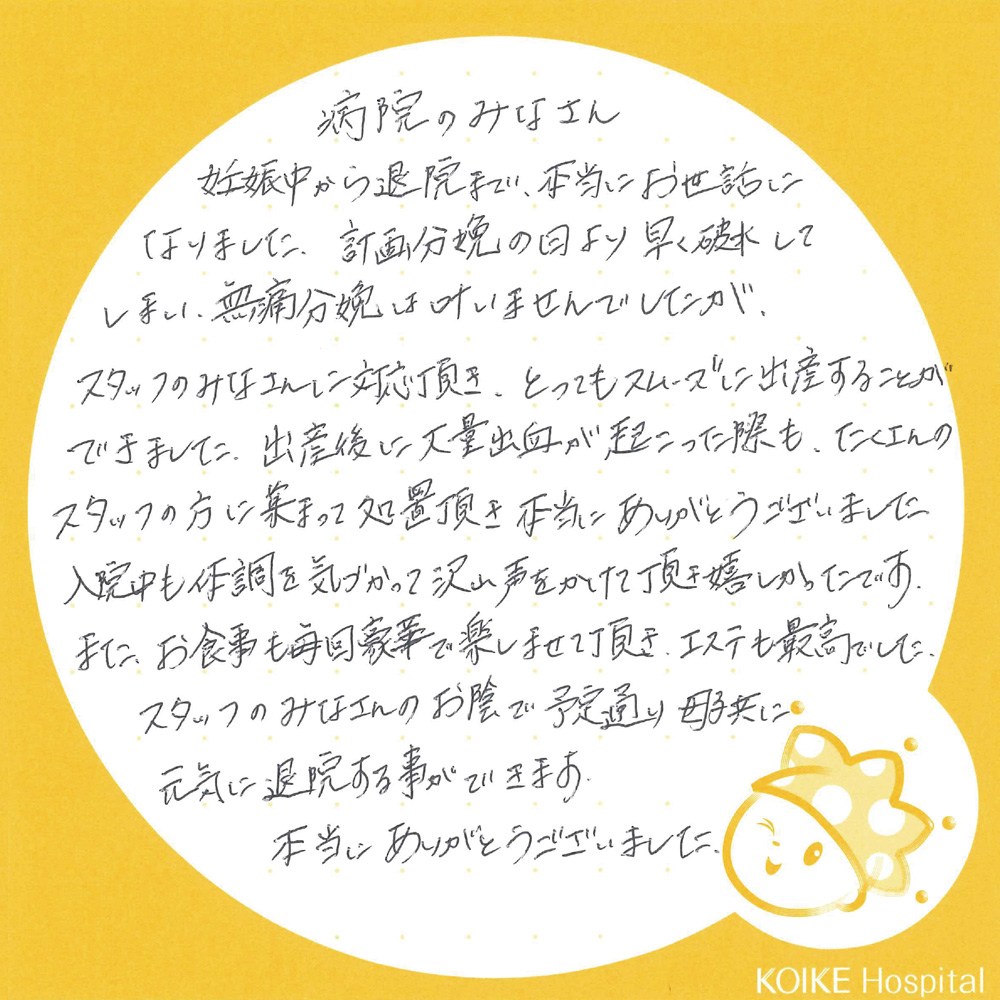 病院のみなさん
妊娠中から退院まで、本当にお世話に
なりました。計画分娩の日より早く破水して
しまい、無痛分娩は叶いませんでしたが、
スタッフのみなさんに対応頂き、とってもスムーズに出産することが
できました。出産後に大量出血が起こった際も、たくさんの
スタッフの方に集まって処置頂き本当にありがとうございました
入院中も体調を気づかって沢山声をかけて頂き嬉しかったです。
また、お食事も毎回豪華で楽しませて頂き、エステも最高でした。
スタッフのみなさんのお陰で予定通り母子共に
元気に退院する事ができます。
本当にありがとうございました。
KOIKE Hospital